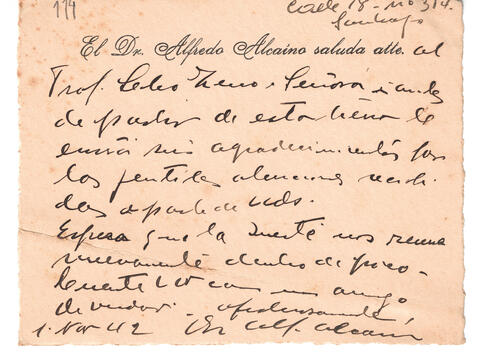 114
Calle 18 - No 314.
Santiago
El Dr. Alfredo Alcaino saluda atte. al
Prof. Lelio Zeno i Señora i antes
de partir de esta tierra le
envía sus agradecimientos por
las gentiles atenciones recibi
das de parte de Uds.
Espera que la suerte nos reuna
nuevamente dentro de poco -
Cuente Ud con un amigo
de verdad. afectuosamente,
1. Nov 42 Dr Alf. Alcaino